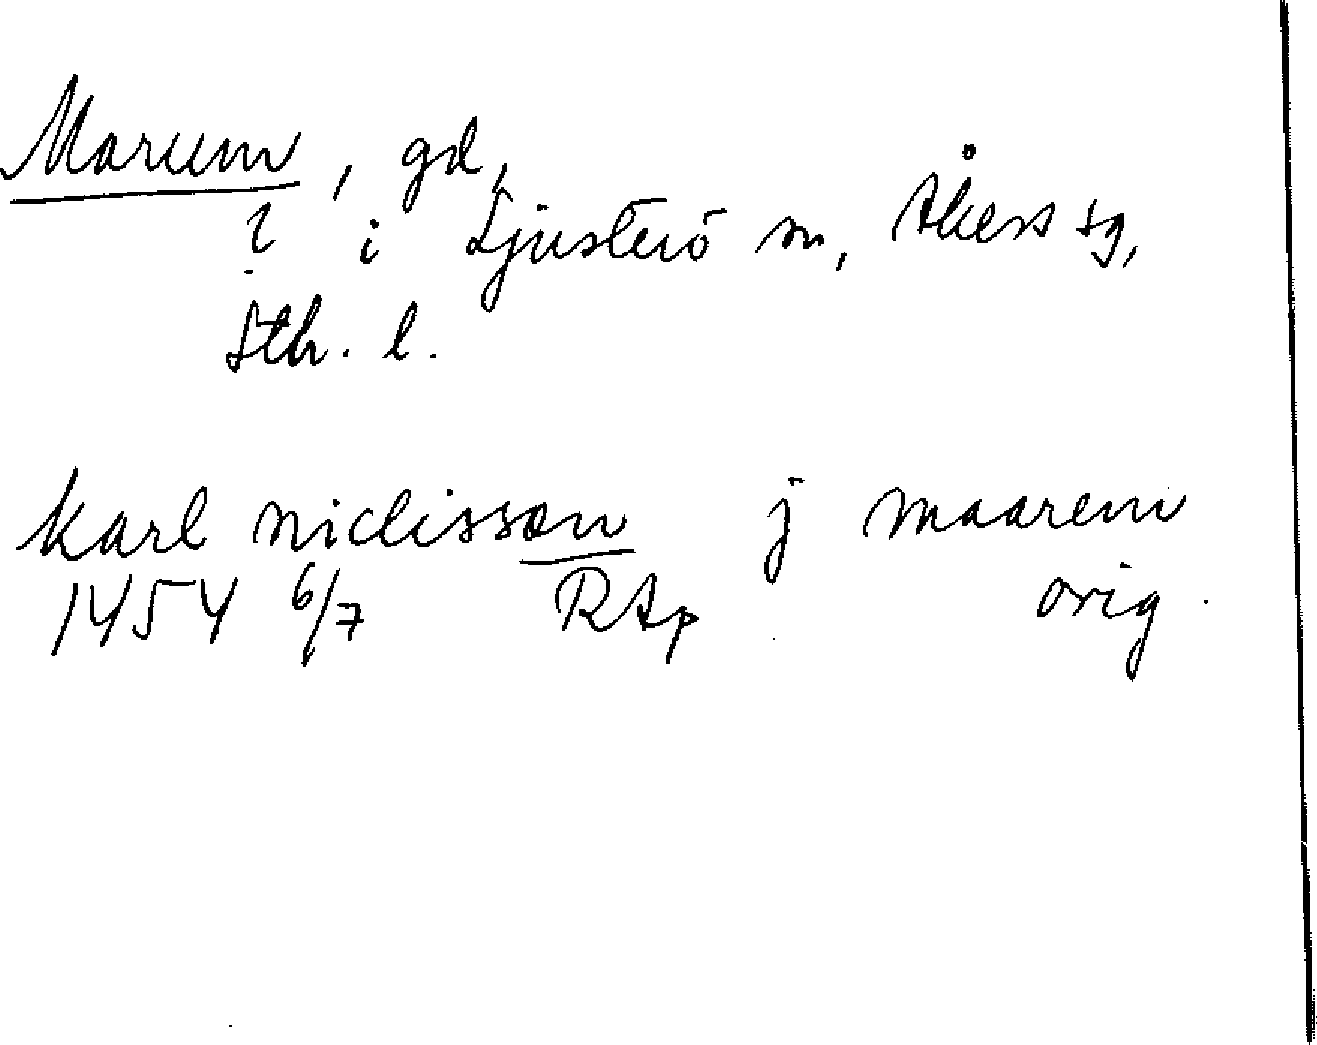 Marum, gd,
? i Ljusterö sn, Åkers sg,
Sth. l.
karl niclisson j maarem
1454 6/7 RAp orig.